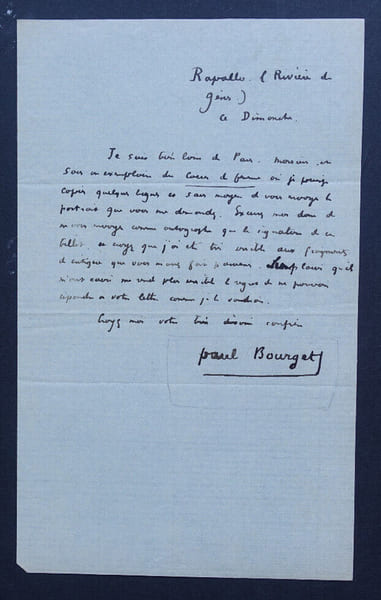 Rapallo. (Rivière de
Gênes)
Ce Dimanche.
Je suis très loin de Paris, monsieur, et
sans un exemplaire du Coeur de femme où je puisse
copier quelques lignes et sans moyen de vous envoyer le
portrait que vous me demandez. Excusez moi donc de
ne vous envoyer comme autographe que la signature de ce
billet, et croyez que j'ai été très sensible aux fragments
de critique que vous m'avez fait parvenir. plaisir qu'ils
m'ont causé me rend plus sensible le regret de ne pouvoir
répondre à votre lettre comme je le voudrais.
Croyez moi votre très dévoué confrère
Paul Bourget